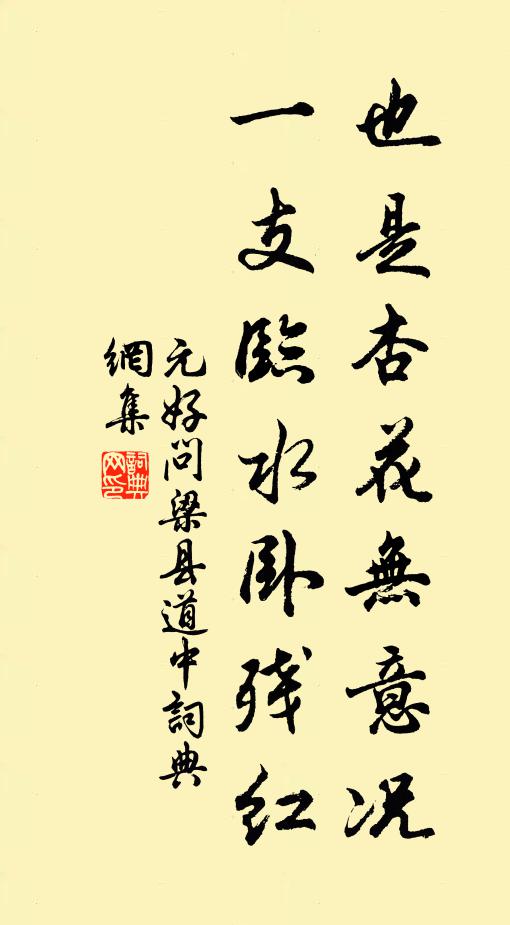 也是杏花無意況
一支臨水卧残红
元好问梁县道中詞典
網集
詞典网印